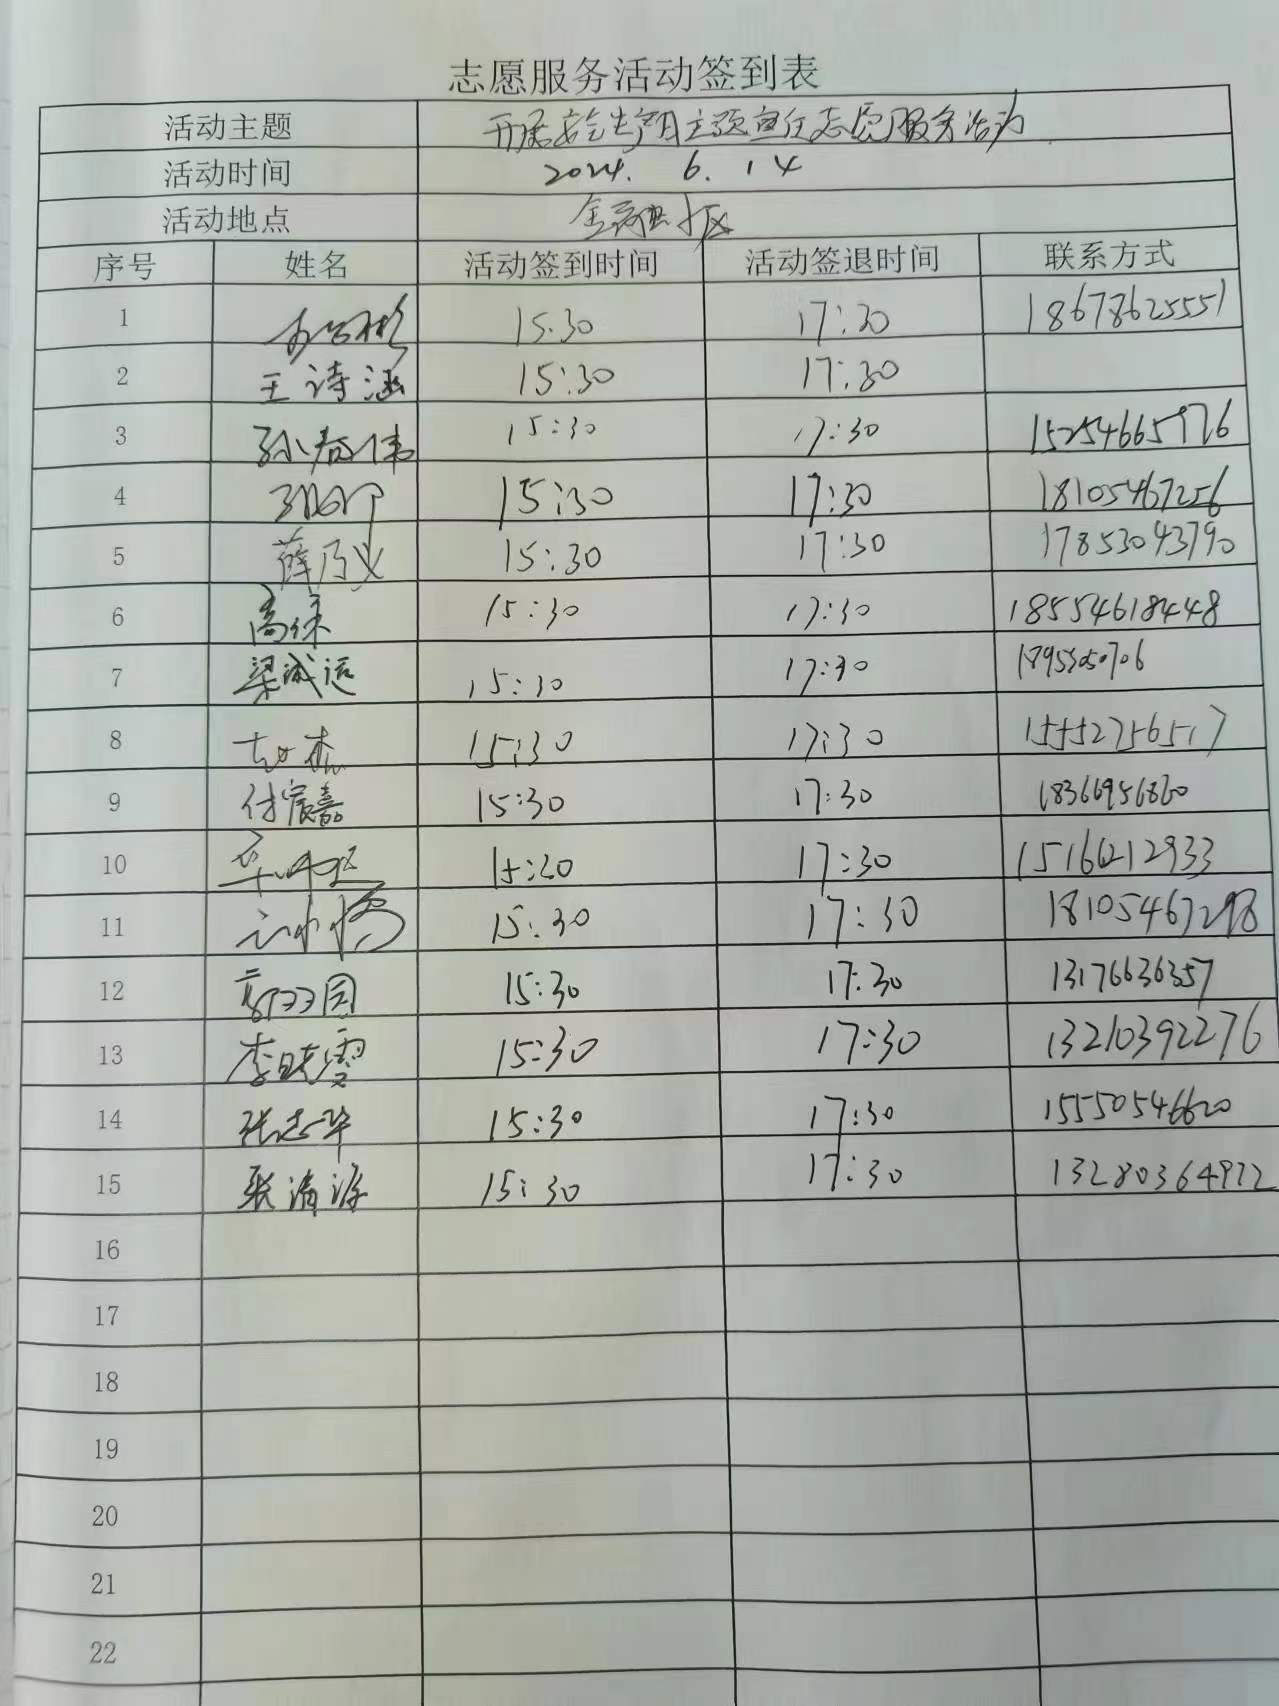 志愿服务活动签到表
活动主题 开展安全生产月主题宣传志愿服务活动
活动时间 2024. 6. 14
活动地点
序号 姓名 活动签到时间 活动签退时间 联系方式
1 15:30 17:30 18678625551
2 王诗涵 15:30 17:30
3 孙春伟 15:30 17:30 15254665976
4 15:30 17:30 18105467256
5 薛乃义 15:30 17:30 17853043790
6 高绿 15:30 17:30 18554618448
7 梁诚运 15:30 17:30
8 15:30 17:30 15552756517
9 付宸嘉 15:30 17:30 18366956860
10 15:20 17:30
11 15:30 17:30 18105467298
12 郭双园 15:30 17:30 13176636357
13 李映雪 15:30 17:30 13210392276
14 张志华 15:30 17:30 15550546620
15 张清源 15:30 17:30 13280364922
16
17
18
19
20
21
22